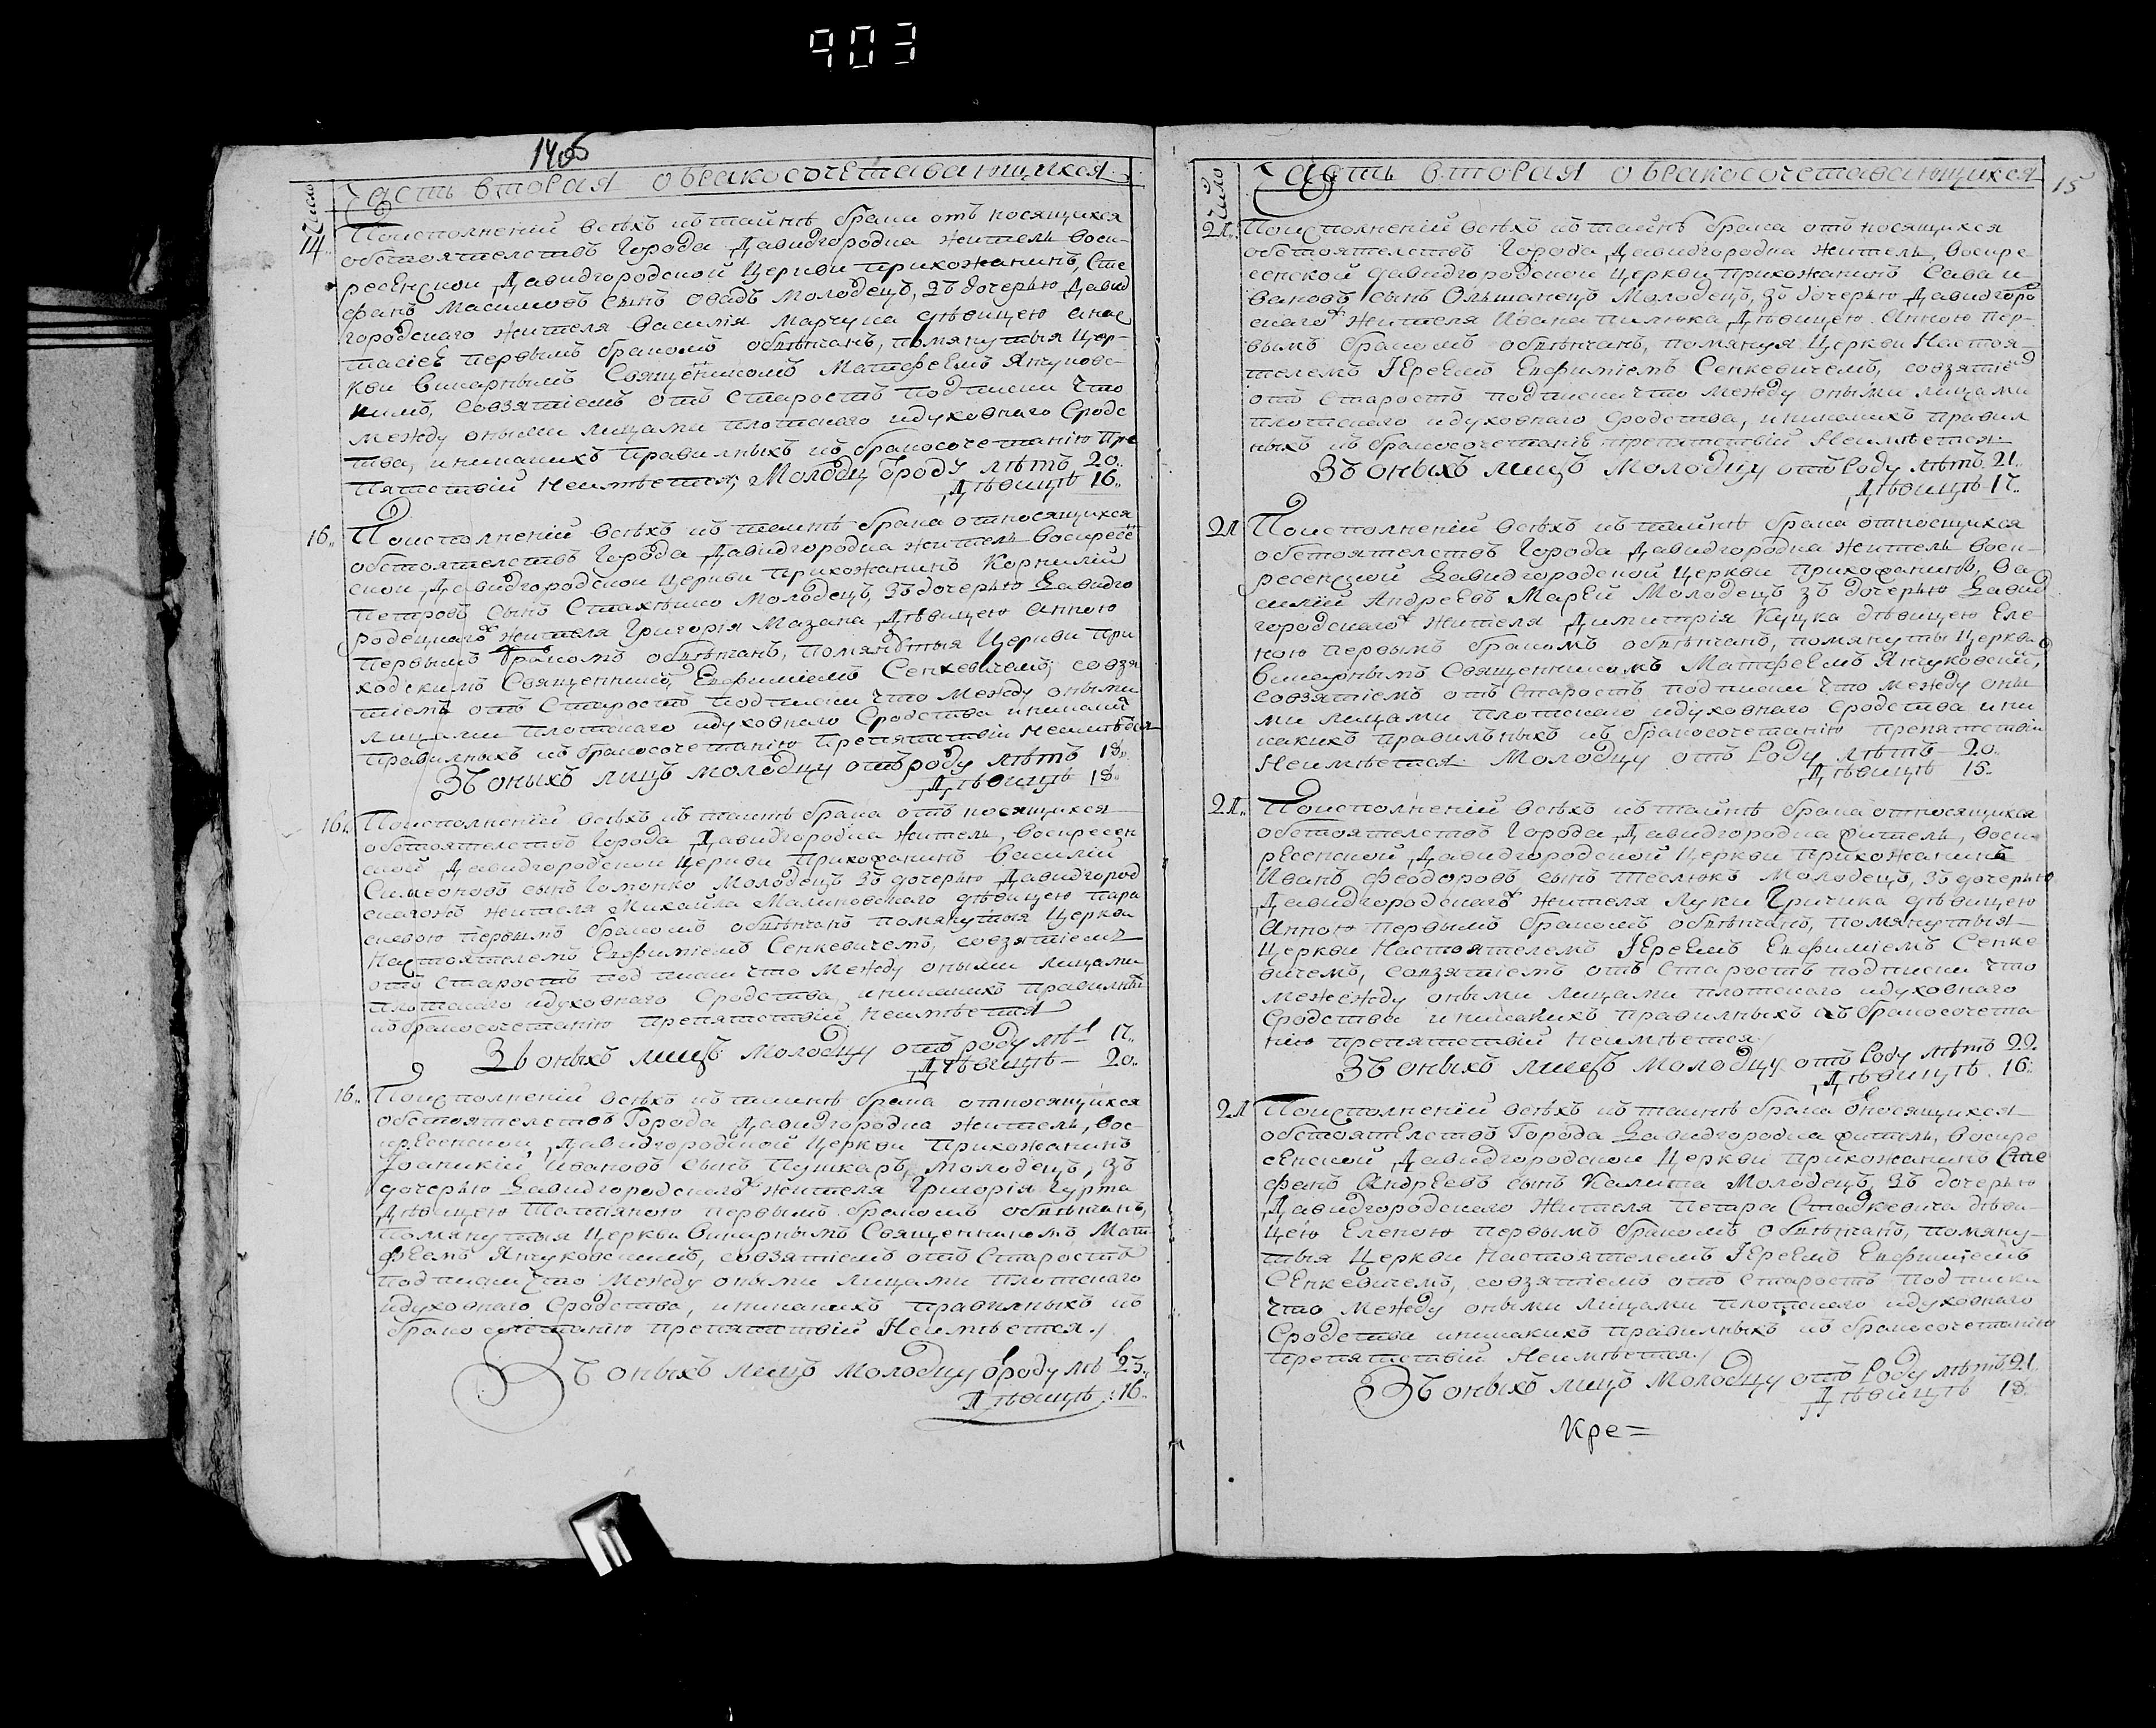 903
1405
Число
Часть вторая обракосочетавающихся
14. Поисполненій всѣхъ къ тайнѣ брака отъ носящихся
обстоятелствъ Города Давидгородка житель Воск-
ресенской Давидгородской Церкви прихожанинъ, Сте
фанъ Масимовъ сынъ молодецъ, зъ дочерью Давид
городскаго жителя Василія Марчука дѣвицею Анас
тасіею первымъ бракомъ обвѣнчанъ, помянутыя Цер-
кви Викарнымъ Священникомъ Матфеемъ Янчуковс-
кимъ, совзятіемъ отъ Старостъ подписки что
между оными лицами плотскаго идуховнаго Сродс
тва, иникакихъ правилныхъ къ бракосочетанію пре
пятствій Неимѣется; Молодцу ѿроду лѣтъ 20..
Дѣвицѣ 16..
16.. Поисполненій всѣхъ къ таинѣ брака относящихся
обстоятелствъ Города Давидгородка житель Воскресен
ской Давидгородской Церкви Прихожанинъ Корнилій
Петровъ сынъ Стахѣйко Молодецъ, зъ дочерью Давидго
родецкаго жителя Григорія Мазана Дѣвицею Анною
первымъ бракомъ обвѣнчанъ, помянутыя Церкви При
ходскимъ Священникомъ Евфиміемъ Сенкевичемъ, совзя
тіемъ отъ Старостъ подписки что Между оными
лицами плотскаго идуховнаго Сродства иникакихъ
правилныхъ къ бракосочетанію Препятствій неимѣется
Зъ оныхъ лицъ молодцу отъ роду лѣтъ 18..
Дѣвицѣ 18.
16.. Поисполненій всѣхъ къ таинѣ брака отъ носящихся
обстоятелствъ Города Давидгородка житель, Воскресен
ской Давидгородской Церкви Прихожанинъ Василій
Симеоновъ сынъ Гомонко Молодецъ зъ дочерью Давидгород
скагожъ жителя Михайла Малиновскаго дѣвицею Пара
скевою первымъ бракомъ обвѣнчанъ помянутыя Церкви
Настоятелемъ Евфиміемъ Сенкевичемъ, совзятіемъ
отъ Старостъ подписки что между оными лицами
плотскаго идуховнаго Сродства, иникакихъ правилныхъ
къ бракосочетанію препятствій неимѣется
Зъ оныхъ лицъ молодцу отъ роду лѣ 17..
Дѣвицѣ — 20..
16.. Поисполненій всѣхъ къ таинѣ брака относящихся
обстоятелствъ Города Давидгородка житель, Вос-
кресенской, Давидгородской Церкви Прихожанинъ
Іоаникій Ивановъ сынъ Пушкаръ Молодецъ, зъ
дочерью Давидгородскаго жителя Григорія Гурта
Дѣвицею Татіяною первымъ бракомъ обвѣнчанъ,
помянутыя Церкви Викарнымъ Священникомъ Мат
феемъ Янчуковскимъ, совзятіемъ отъ Старостъ
подписки что между оными лицами плотскаго
идуховнаго Сродства, иникакихъ правилныхъ къ
бракосочетанію препятствій Неимѣется./
Зъ оныхъ лицъ молодцу ѿроду лѣ 23..
Дѣвицѣ : 16..
Число
Часть вторая обракосочетавающихся
15
21.. Поисполненій всѣхъ къ тайнѣ брака отъ носящихся
обстоятелствъ Города Давидгородка житель, Воскре
сенской Давидгородской Церкви прихожанинъ Сава И
вановъ сынъ Ольшанецъ Молодецъ, зъ дочерью Давидгоро
скаго жителя Ивана Пилюка, Дѣвицею Анною пер-
вымъ бракомъ обвѣнчанъ, помянуя Церкви Настоя-
телемъ Іереемъ Евфиміемъ Сенкевичемъ, совзятіем
отъ Старостъ подписки что между оными лицами
плотскаго идуховнаго сродства, иникакихъ правил
ныхъ къ бракосочетанію препятствій Неимѣется:
Зъ оныхъ лицъ молодцу отъ Роду лѣтъ 21..
Дѣвицѣ 17..
21 Поисполненій всѣхъ къ таинѣ брака относщихся
обстоятелствъ Города Давидгородка житель Воск-
ресенской Давидгородской Церкви Прихожанинъ, Ва
силій Андреевъ Марей Молодецъ зъ дочерью Давид
городскаго жителя Димитрія Куцка дѣвицею Еле-
ною первымъ бракомъ обвѣнчанъ, помянуты Церкви
Викарнымъ Священникомъ Матфеемъ Янчуковским,
совзятіемъ отъ Старостъ подписки что между оны
ми лицами плотскаго идуховнаго сродства ини
какихъ правильныхъ къ бракосочетанію препятствій
Неимѣется. Молодцу отъ Роду лѣтъ 20.
Дѣвицѣ 15..
21.. Поисполненій всѣхъ къ таинѣ брака относящихся
обстоятелствъ Города Давидгородка житель, Воск-
ресенской Давидгородской Церкви прихожанинъ
Иванъ Феодоровъ сынъ Теслюкъ Молодецъ, зъ дочерью
Давидгородскаго жителя Луки Гричика дѣвицею
Анною первымъ бракомъ обвѣнчанъ, помянутыя
Церкви Настоятелемъ Іереемъ Евфиміемъ Сенке
вичемъ, совзятіемъ отъ Старостъ подписки что
межежду оными лицами плотскаго идуховнаго
Сродства иникакихъ правилныхъ къ бракосочета
нію препятствій Неимѣется/
Зъ оныхъ лицъ молодцу отъ Роду лѣтъ 22.
Дѣвицѣ. 16..
21 Поисполненій всѣхъ къ таинѣ брака ѿносящихся
обстоятелствъ Города Давидгородка житель, Воскре
сенской Давидгородской Церкви прихожанинъ Сте
фанъ Андреевъ сынъ Калита Молодецъ, зъ дочерью
Давидгородскаго жителя Петра Стадкевича дѣви-
цею Еленою первымъ бракомъ обвѣнчанъ, помяну-
тыя Церкви Настоятелемъ Іереемъ Евфиміемъ
Сенкевичемъ, совзятіемъ отъ Старостъ Подписки
что между оными лицами плотскаго идуховнаго
Сродства иникакихъ правилныхъ къ бракосочетанію
препятствій Неимѣется./
Зъ оныхъ лицъ молодцу отъ Роду лѣтъ 21.
Дѣвицѣ 18.
Кре=